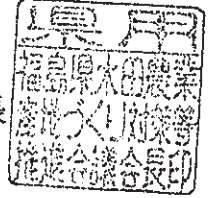 福島県水田農業
産地づくり対策等
推進会議会長印